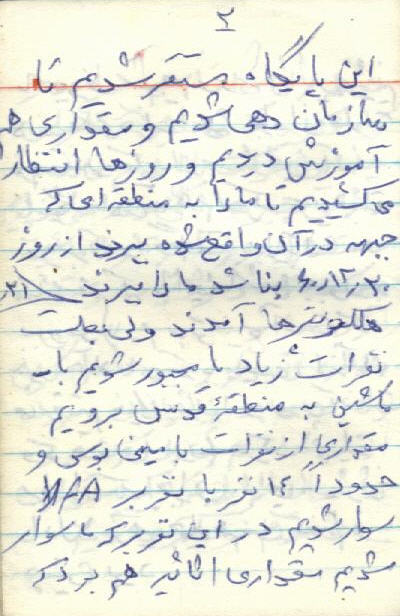 ۲
این پایگاه مستقر شدیم تا
سازمان دهی شدیم و مقداری هم
آموزش دیدیم و روزها انتظار
می کشیدیم تا ما را به منطقه ای که
جبهه در آن واقع شده ببرند از روز
۶۰،۱۲،۲۰ بنا شد ما را ببرند
هلکوپترها آمدند ولی بعلت
نفرات زیاد ما مجبور شدیم با
ماشین به منطقه قدس برویم
مقداری از نفرات با مینی بوس و
حدوداً ۱۴ نفر با نفربر
سوار شدیم در این نفربر که ما سوار
شدیم مقداری اثاثیه هم بود که